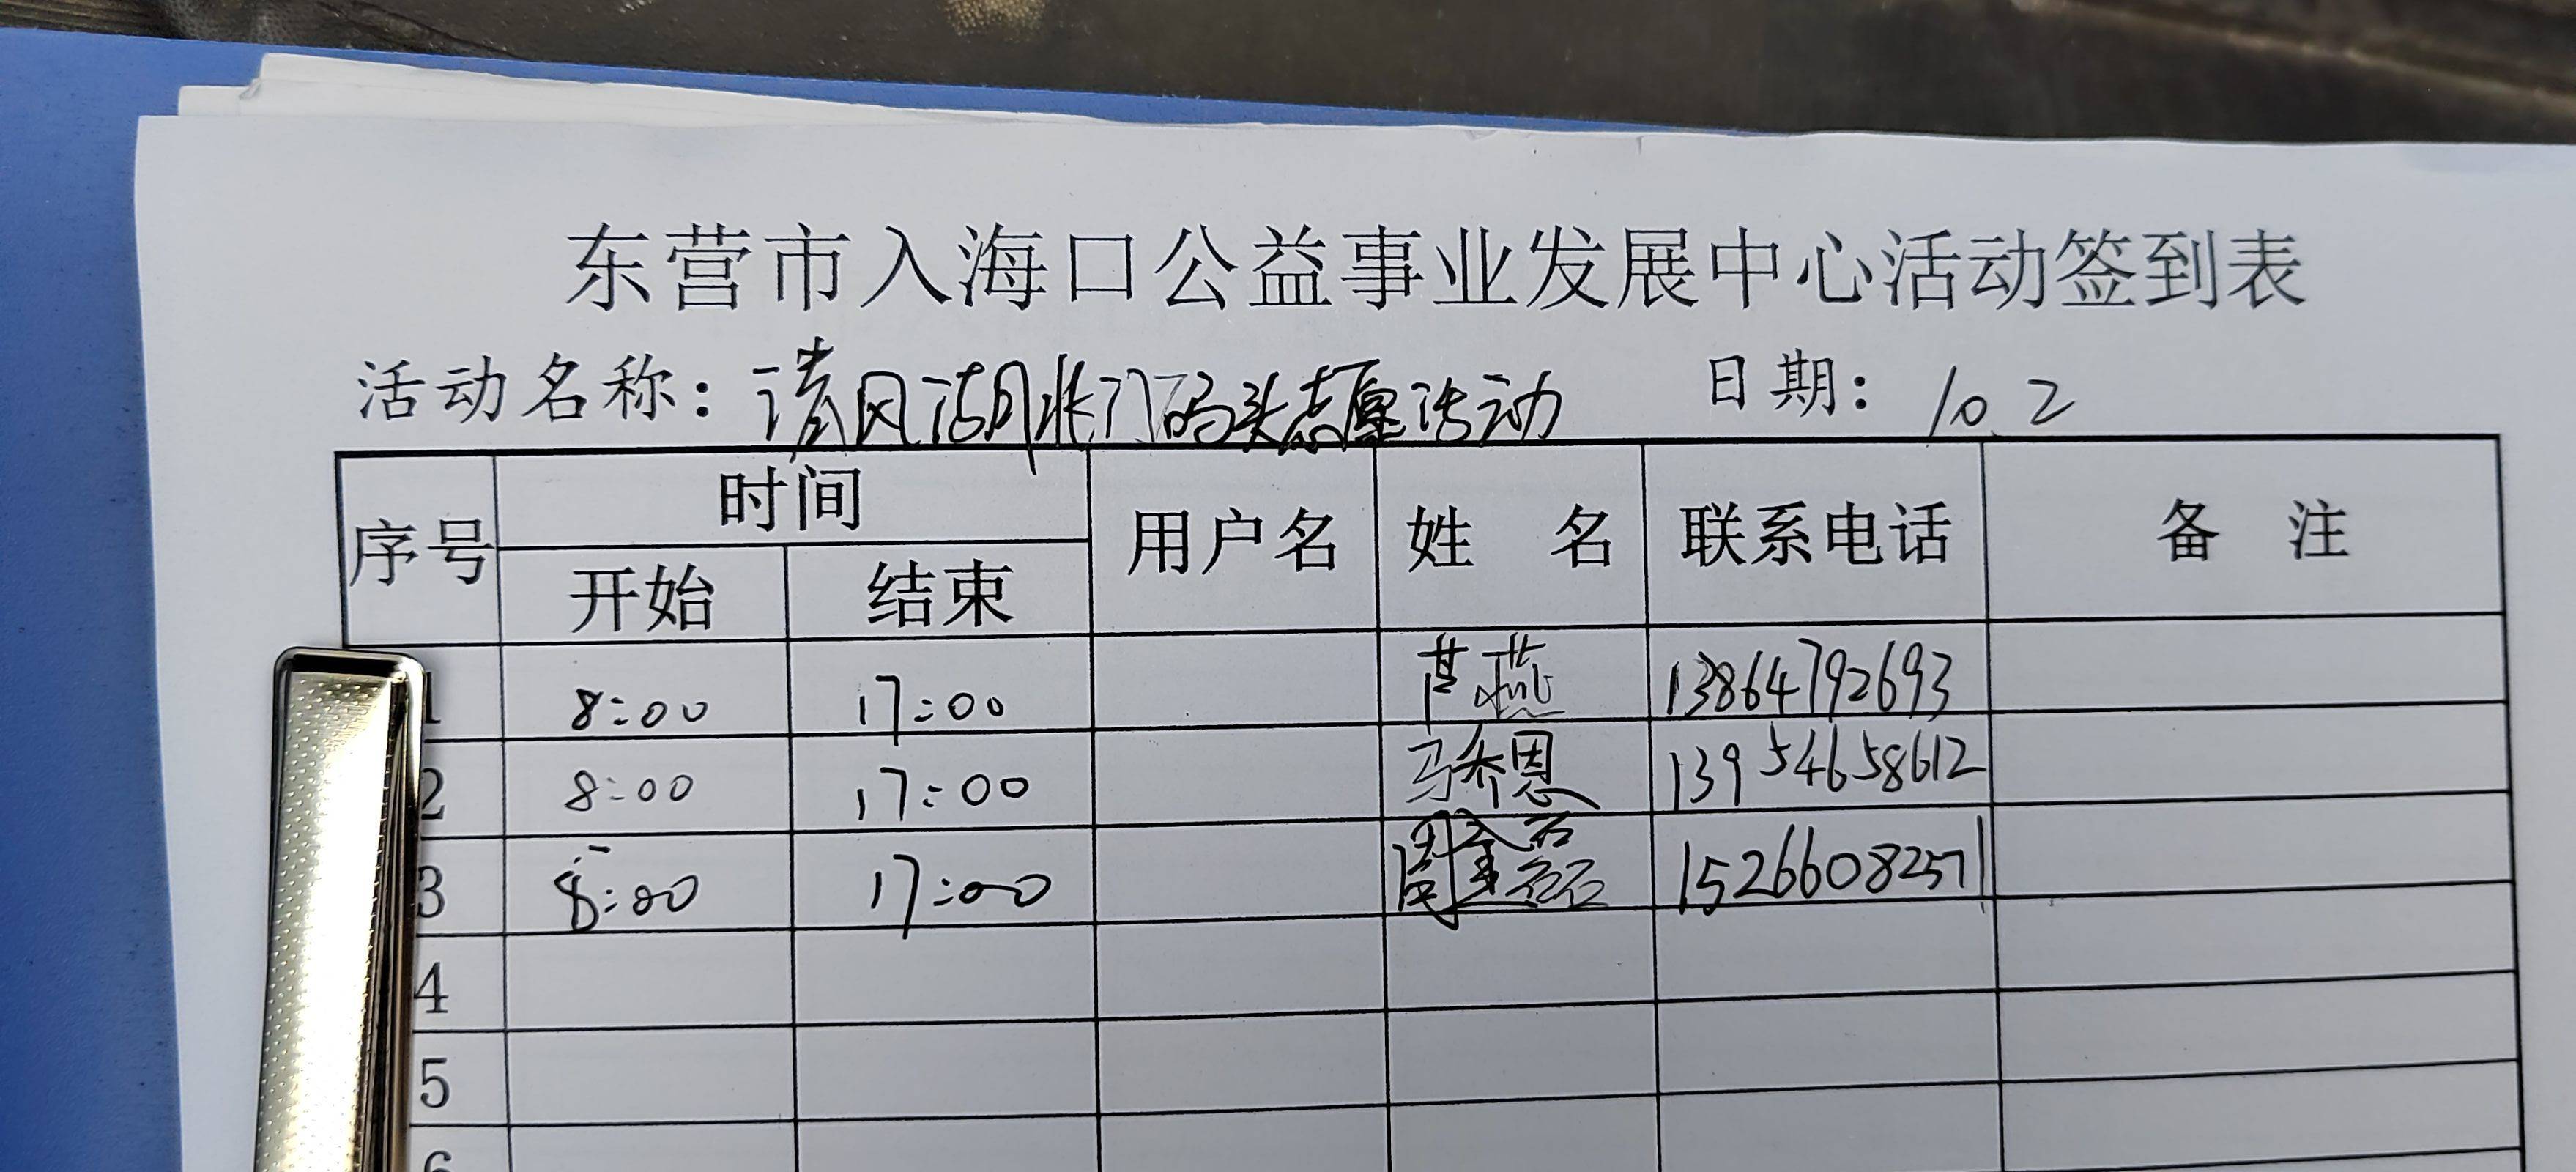 东营市入海口公益事业发展中心活动签到表
活动名称：清风湖北门码头志愿活动 日期：10.2
序号 时间 用户名 姓 名 联系电话 备 注
开始 结束
1 8:00 17:00 13864792693
2 8:00 17:00 马乔恩 13954658612
3 8:00 17:00 周金磊 15266082571
4
5
6